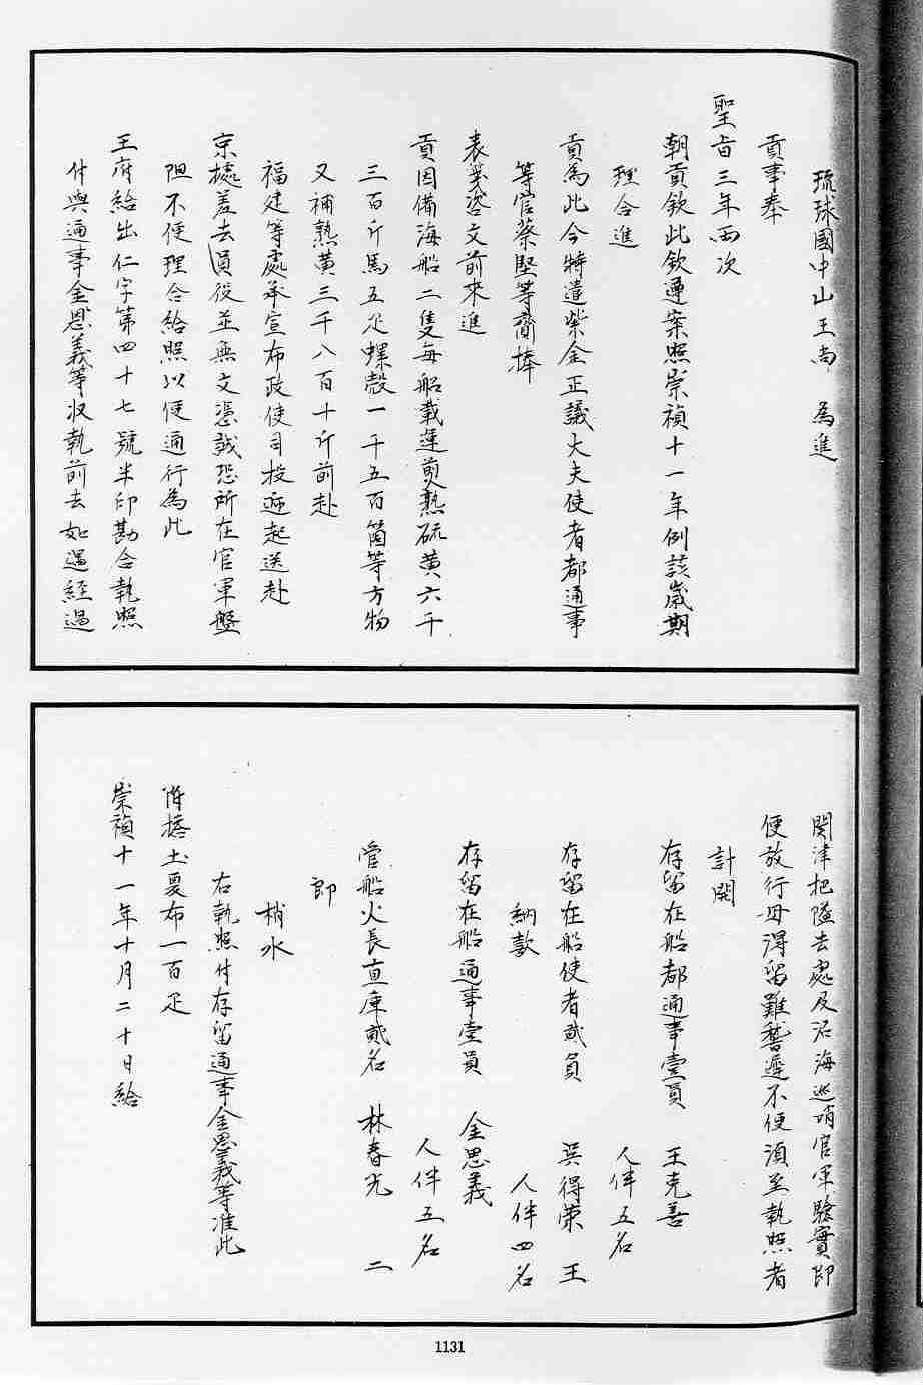 琉球國中山王尚　為進
貢事奉
聖旨三年兩次
朝貢欽此欽遵案照崇禎十一年例該歲期
理合進
貢為此今特遣紫金正議大夫使者都通事
等官蔡堅等齎捧
表箋咨文前來進
貢因備海船二隻每船載運煎熟硫黃六千
三百斤馬五疋螺殼一千五百箇等方物
又補熟黃三千八百十斤前赴
福建等處承宣布政使司投遞起送赴
京據差去員役並無文憑誠恐所在官軍盤
阻不便理合給照以便通行為此
王府給出仁字第四十七號半印勘合執照
付與通事金思義等収執前去如遇經過
関津把隘去處及沿海巡哨官軍驗實即
便放行毋得留難稽遲不便須至執照者
計開
存留在船都通事壹員　王克善
人伴五名
存留在船使者貳員　吳得榮　王
納歀
人伴四名
存留在船通事壹員　金思義
人伴五名
管船火長直庫貳名　林春光　二
即
梢水
右執照付存留通事金思義等准此
附搭土夏布一百疋
崇禎十一年十月二十日給
1131